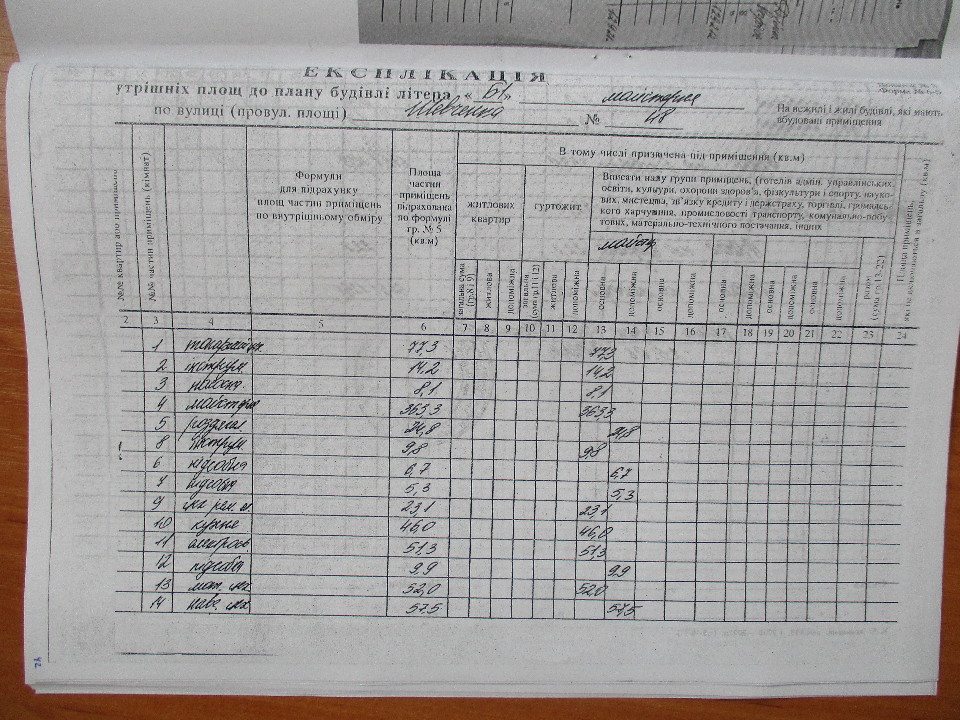 ЕКСПЛІКАЦІЯ
утрішніх площ до плану будівлі літера « Б1 » майстерня
по вулиці (провул. площі) Шевченка № 48
На нежилі і жилі будівлі, які мають
вбудовані приміщення
№ частин приміщень (кімнат)
Формули
для підрахунку
площ частин приміщень
по внутрішньому обміру
Площа
частин
приміщень
підрахована
по формулі
гр. № 5
(кв.м)
В тому числі призначена під приміщення (кв.м)
житлових
квартир
гуртожит.
Вписати назву групи приміщень, (готелів адмін. управлінських,
освіти, культури, охорони здоров'я, фізкультури і спорту, науко-
вих, мистецтва, зв'язку кредиту і держстраху, торгівлі, громадсь-
кого харчування, промисловості транспорту, комунально-побу-
тових, матерально-технічного постачання, інших
загальна сума (гр.8 і 9)
житлова
допоміжна
загальна (сума гр.11 і 12)
житлова
допоміжна
основна
допоміжна
основна
допоміжна
основна
допоміжна
основна
допоміжна
основна
допоміжна
разом (сума гр.13-22)
2 3 4 5 6 7 8 9 10 11 12 13 14 15 16 17 18 19 20 21 22 23 24
1 77,3 77,3
2 інструм. 14,2 14,2
3 8,1 8,1
4 майстерня 363,3 363,3
5 роздягал. 24,8 24,8
8 інструм. 9,8 9,8
6 підсобна 6,7 6,7
7 підсобна 5,3 5,3
9 23,1 23,1
10 кузня 46,0 46,0
11 51,3 51,3
12 підсобн 9,9 9,9
13 52,0 52,0
14 57,5 57,5